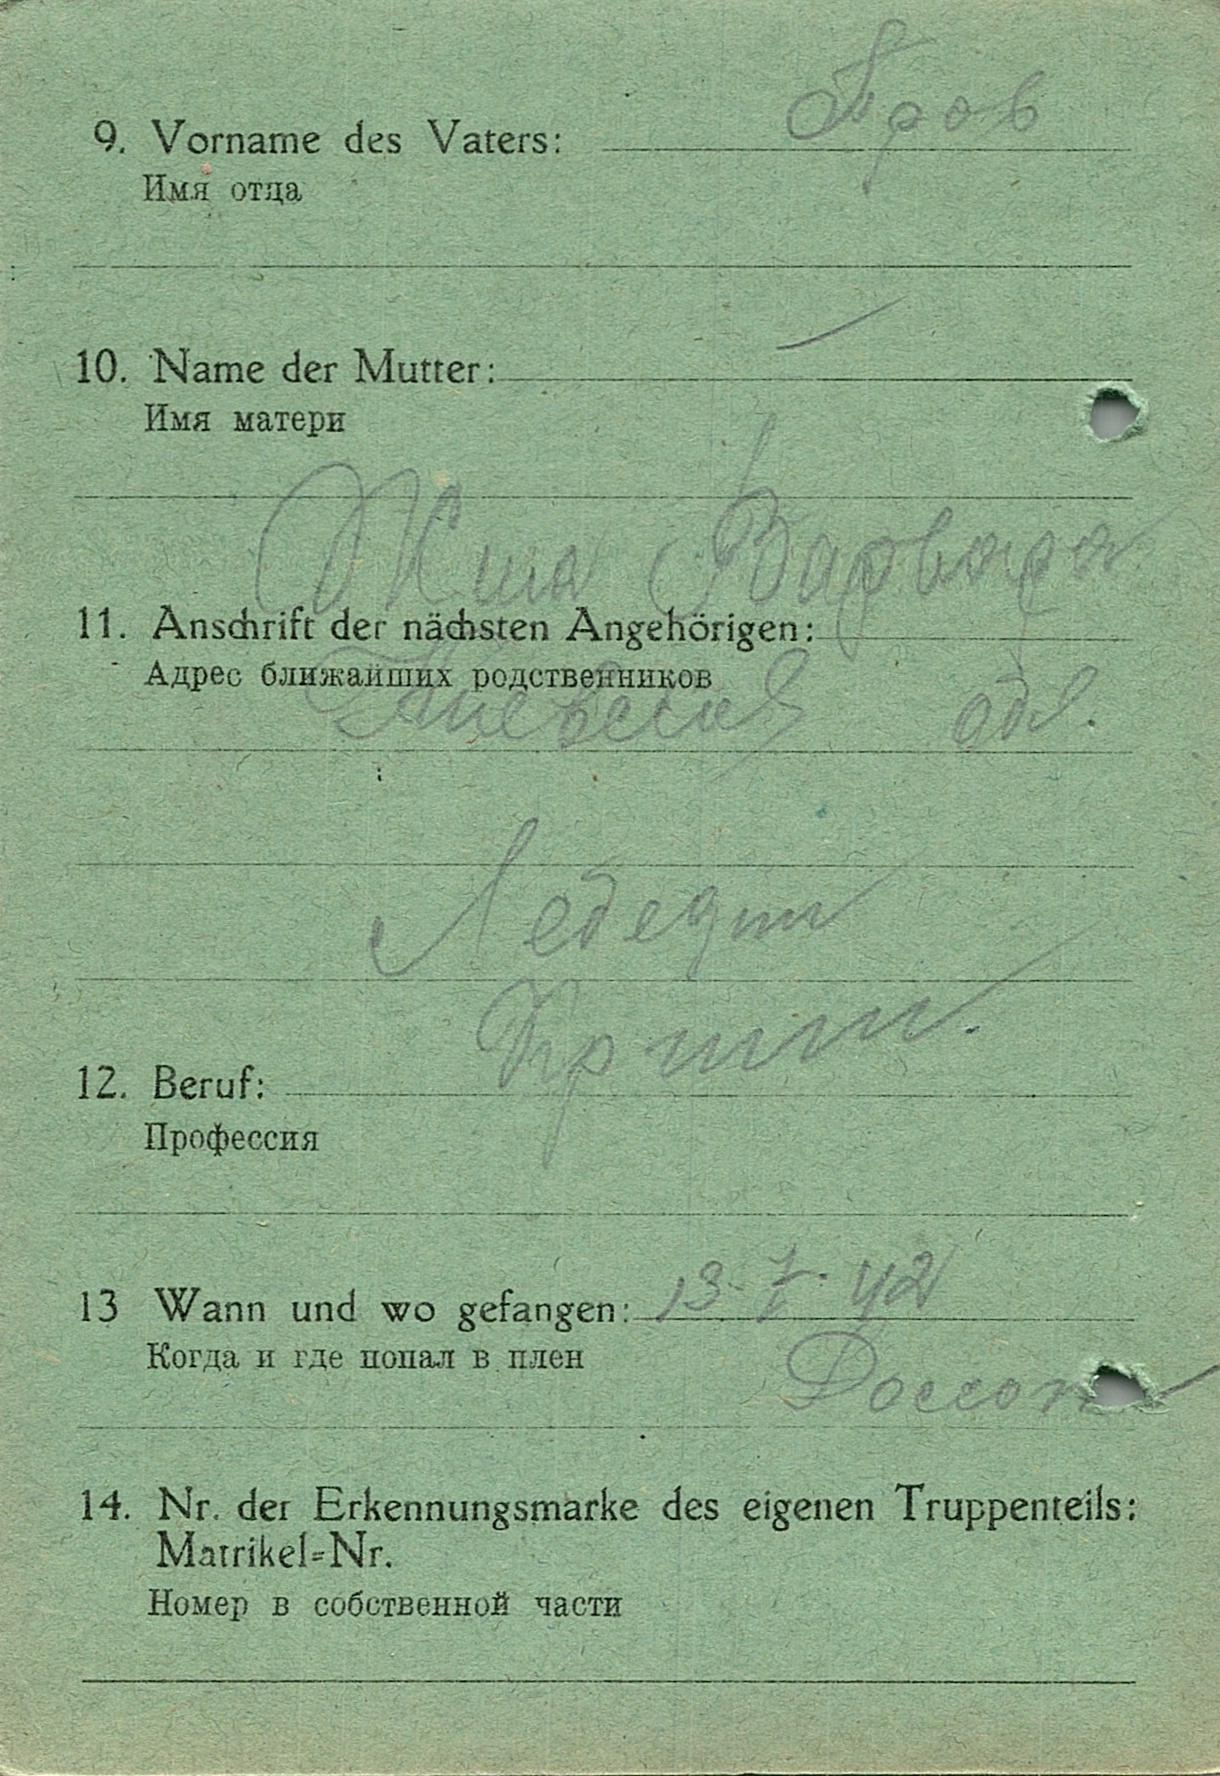 9. Vorname des Vaters: Пров
Имя отца
10. Name der Mutter: —
Имя матери
Жена Варвара
11. Anschrift der nächsten Angehörigen:
Адрес ближайших родственников
обл.
Лебедин
12. Beruf:
Профессия
13 Wann und wo gefangen: 13. 7. 42
Когда и где попал в плен
14. Nr. der Erkennungsmarke des eigenen Truppenteils:
Matrikel-Nr.
Номер в собственной части